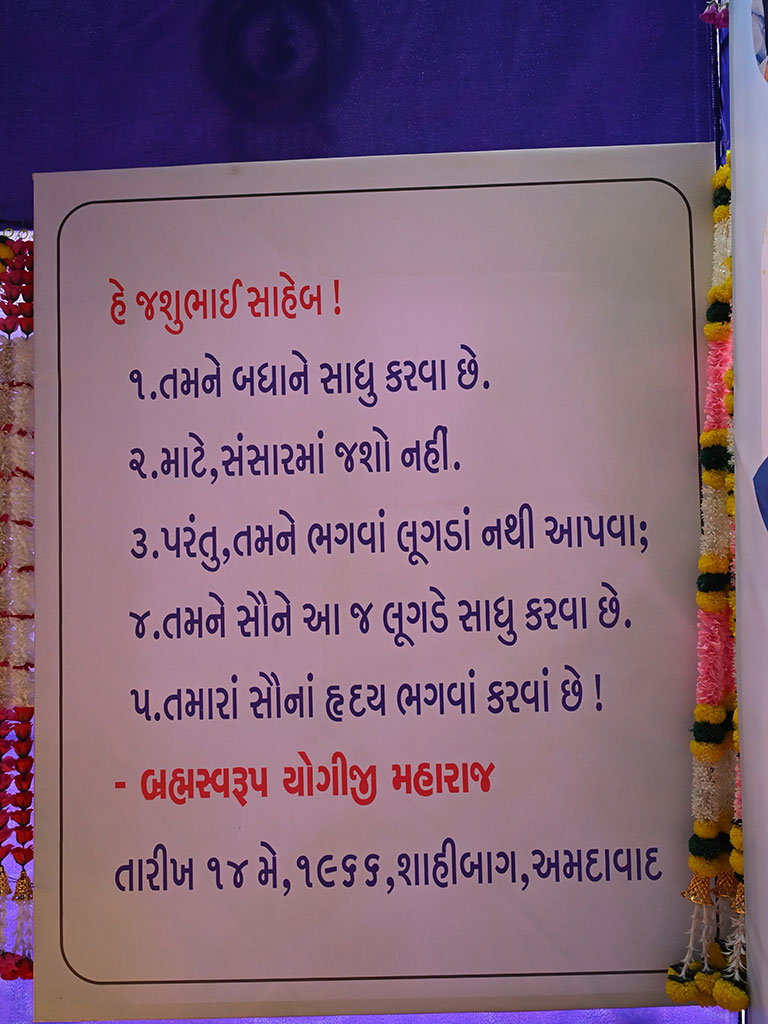 હે જશુભાઈ સાહેબ !
૧.તમને બધાને સાધુ કરવા છે.
૨.માટે,સંસારમાં જશો નહીં.
૩.પરંતુ,તમને ભગવાં લૂગડાં નથી આપવા;
૪.તમને સૌને આ જ લૂગડે સાધુ કરવા છે.
૫.તમારાં સૌનાં હૃદય ભગવાં કરવાં છે !
- બ્રહ્મસ્વરૂપ યોગીજી મહારાજ
તારીખ ૧૪ મે,૧૯૬૬,શાહીબાગ,અમદાવાદ